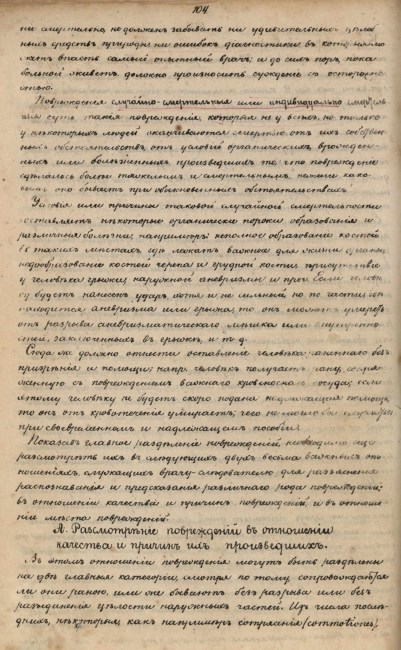 104
ни смертельно, не должен забывать ни удивительных целеб
ных средств природы, ни ошибок диагностики, въ которыя мо
жетъ впасть самый опытный врачъ; и до сихъ поръ, пока
больной живетъ должно произносить сужденіе съ осторожно
стью.
Поврежденія случайно-смертельныя или индивидуально смертель
ныя суть такія поврежденія, которыя не у всѣхъ, но только
у нѣкоторыхъ людей оканчиваются смертью отъ ихъ собствен
ныхъ обстоятельствъ, отъ условій органическихъ врожден-
ныхъ или болѣзненныхъ произведшихъ то что поврежденіе
сдѣлалось болѣе тяжелымъ и смертельнымъ, нежели како
вымъ оно бываетъ при обыкновенныхъ обстоятельствахъ.
Условія или причины таковой случайной смертельности
составляютъ нѣкоторые органическіе пороки образованія и
различныя болѣзни, напримѣръ: неполное образованіе костей
въ такихъ мѣстахъ, гдѣ лежатъ важные для жизни органы,
недообразованіе костей черепа и грудной кости, присутствіе
у человѣка грыжи, наружной аневризмы и проч. Если человѣ
ку будетъ нанесенъ ударъ, хотя и не сильный, но по части, гдѣ
находится аневризма или грыжа, то онъ можетъ умереть
отъ разрыва аневризматическаго мѣшка или внутренно
стей, заключенныхъ въ грыжѣ, и т. д.
Сюда же должно отнести оставленіе человѣка раненнаго безъ
призрѣнія и помощи; напр. человѣкъ получаетъ рану, сопря
женную съ поврежденіемъ важнаго кровеноснаго сосуда; если
этому человѣку не будетъ скоро подана надлежащая помощь,
то онъ отъ кровотеченія умираетъ; чего не могло бы случиться
при своевременномъ и надлежащемъ пособіи.
Показавъ главное раздѣленіе поврежденій, необходимо еще
разсмотрѣть ихъ въ слѣдующихъ двухъ весьма важныхъ от
ношеніяхъ, служащихъ врачу-слѣдователю для разъясненія
распознаванія и предсказанія различнаго рода поврежденій:
въ отношеніи качества и причинъ поврежденій, и въ отноше
ніи мѣста поврежденій.
А. Разсмотрѣніе поврежденій въ отношеніи
качества и причинъ ихъ произведшихъ.
Въ этомъ отношеніи поврежденія могутъ быть раздѣлены
на двѣ главныя категоріи, смотря по тому сопровождаются
ли они раною, или же бываютъ безъ разрыва или безъ
разъединенія цѣлости наружныхъ частей. Изъ числа послѣ
днихъ, нѣкоторыя, какъ напримѣръ сотрясенія (commotiones),